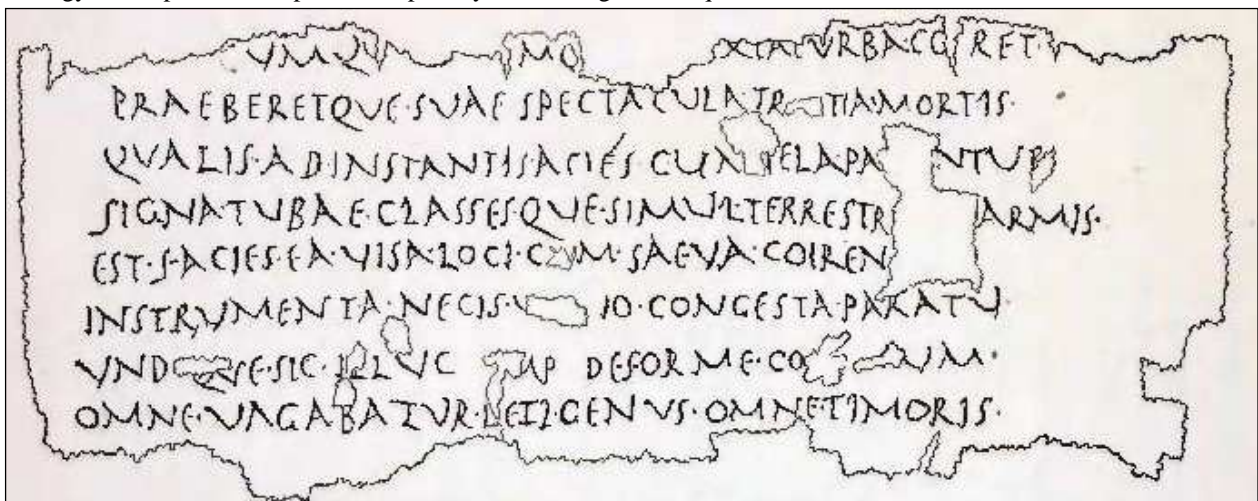 VMQV RET
PRAEBERETQVE·SVAE SPECTACVLA TR TIA·MORTIS·
QVALIS·AD INSTANTIS·ACIES·CVM TELA PA NTVR
SIGNA·TVBAE·CLASSESQVE·SIMVL·TERRESTR ARMIS·
EST·FACIES·EA·VISA·LOCI·CVM·SAEVA·COIREN
INSTRVMENTA·NECIS·V IO·CONGESTA·PARATV
VND QVE·SIC·ILLVC MP DEFORME·CO VM·
OMNE·VAGABATVR·LETI·GENVS·OMNE·TIMORIS·